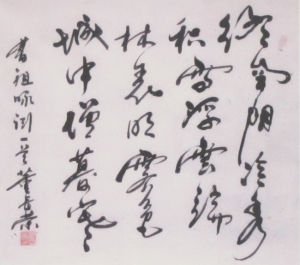 终南阴岭秀
积雪浮雲端
林表明霁色
城中增暮寒
书祖咏诗一首董荣